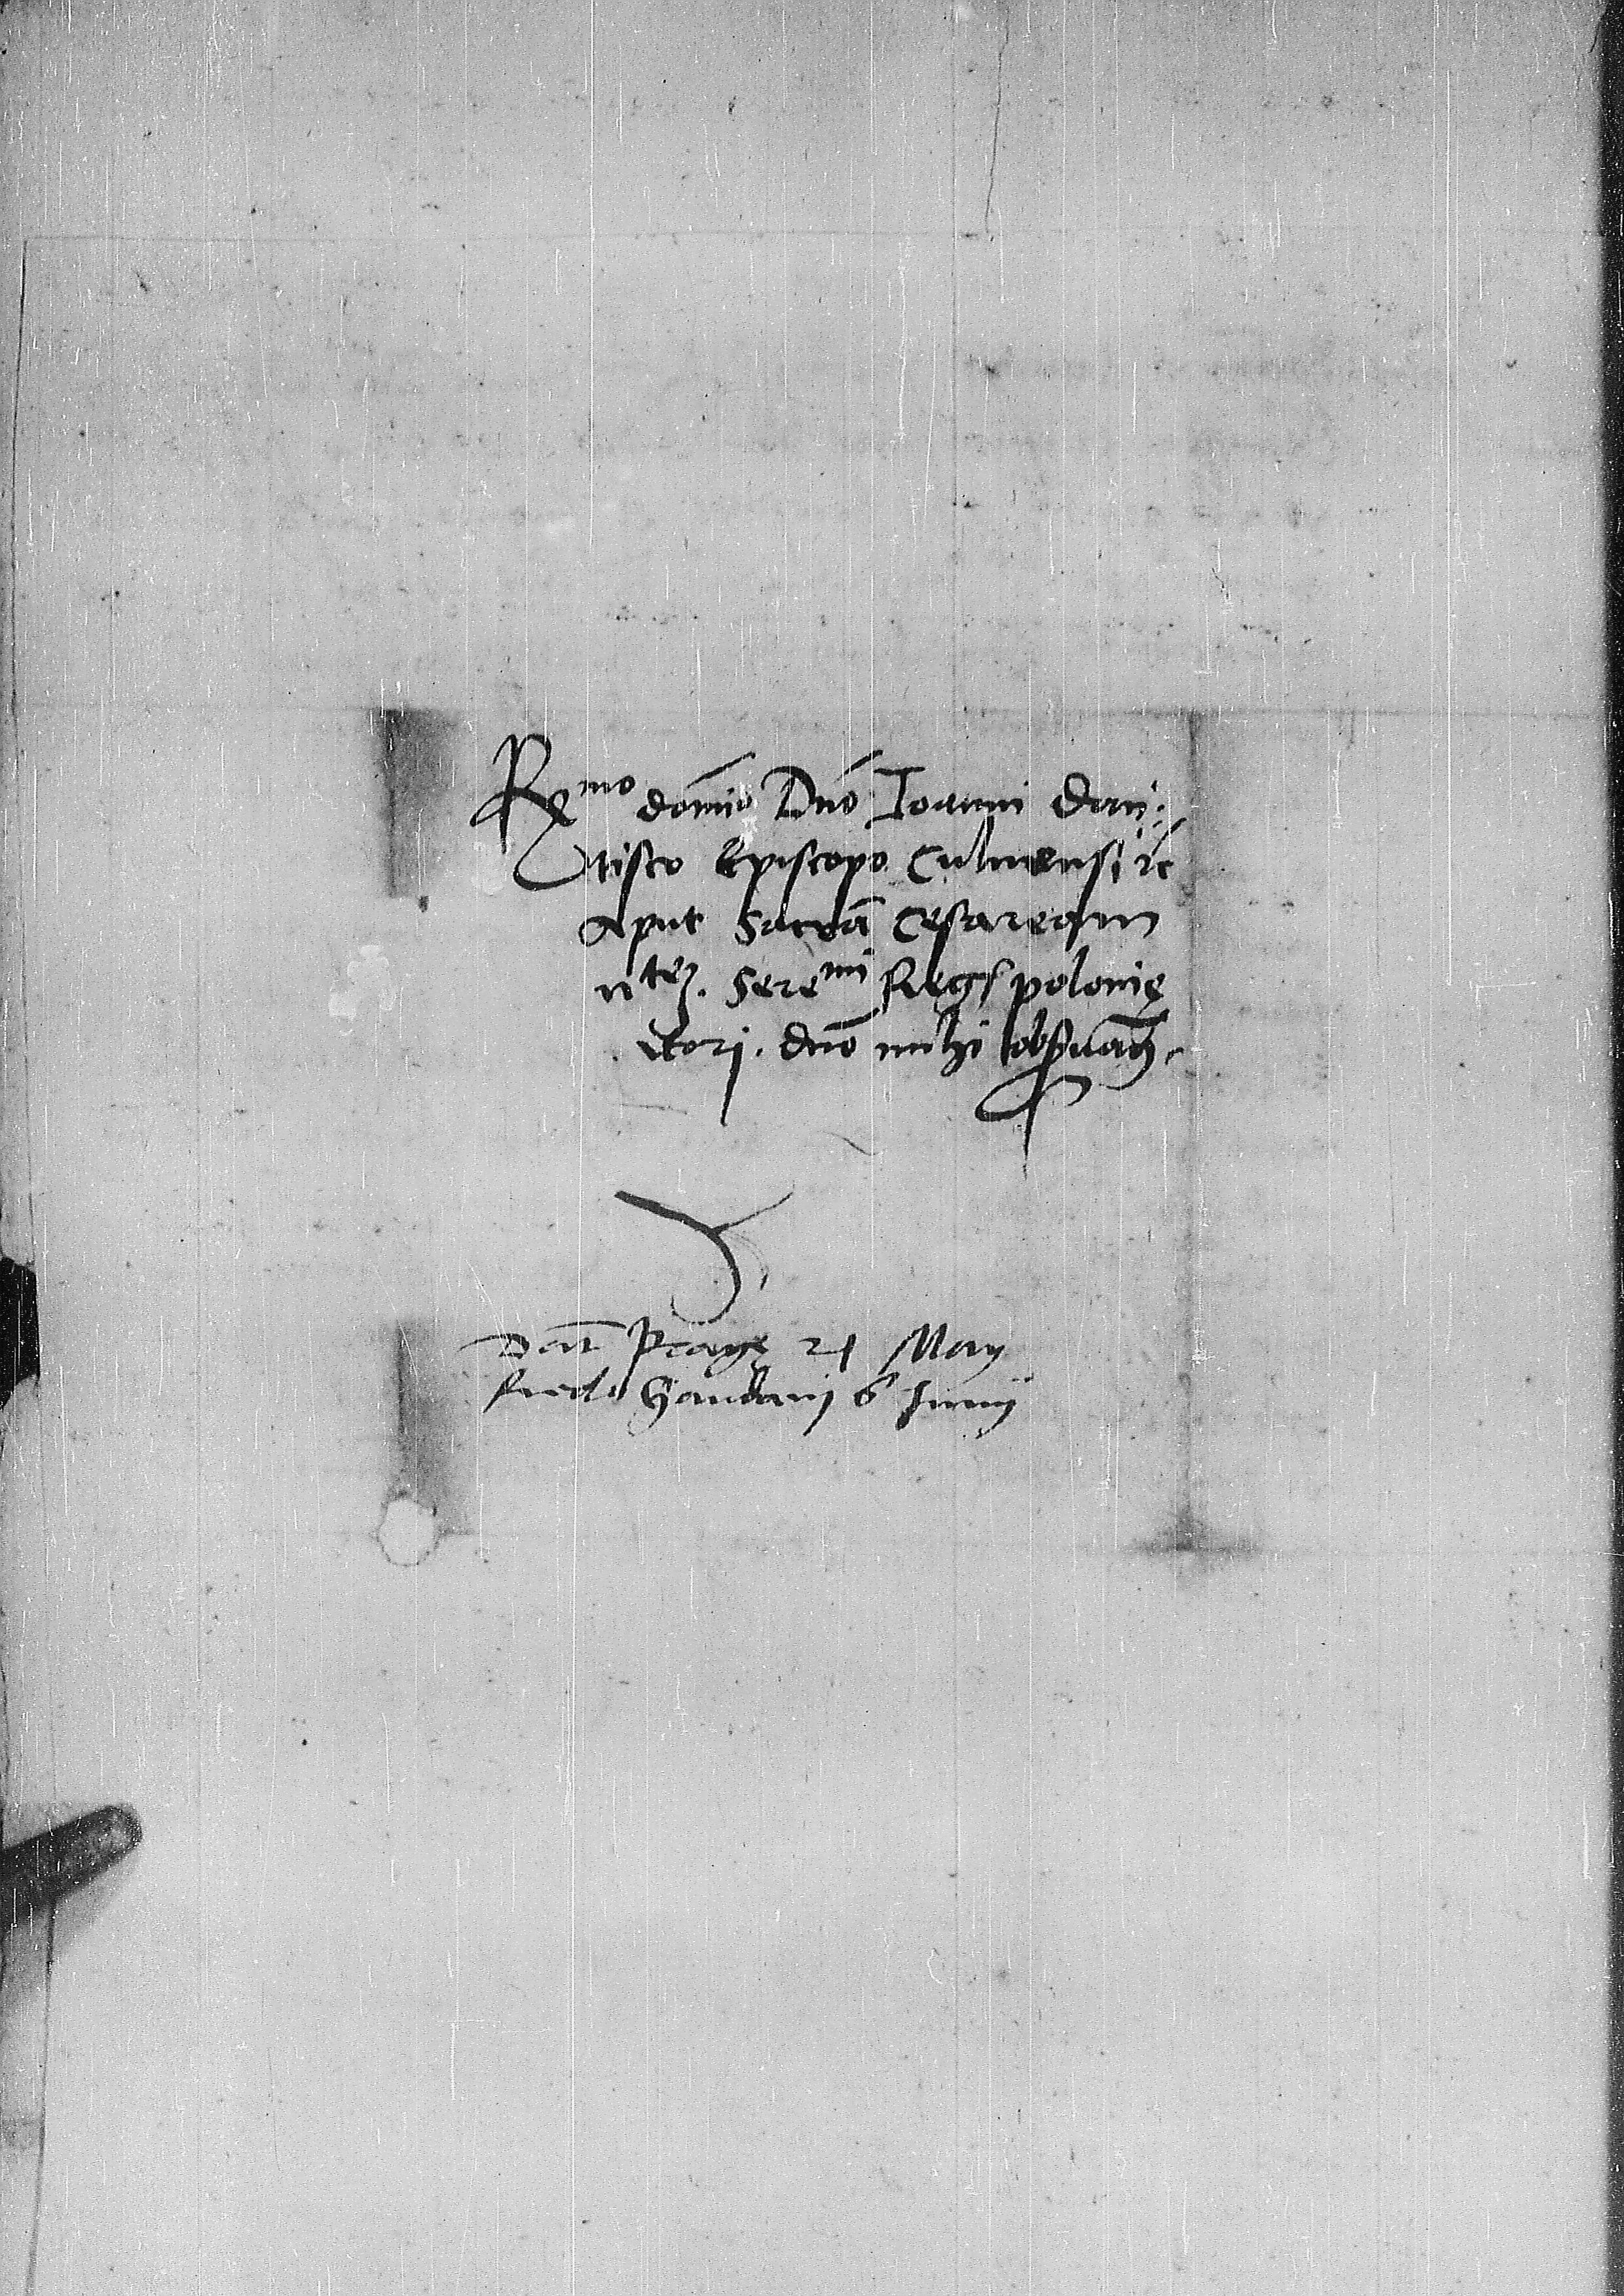 Rmo domino Dno Ioanni Dan:
tisco Episcopo Culmensi etc
Aput Sacra Cesaream
ntem. Seremi Regis polonię
tori. dno mihi obseruan.
Dat Pragę 21 May
Gandavi 6 Junij